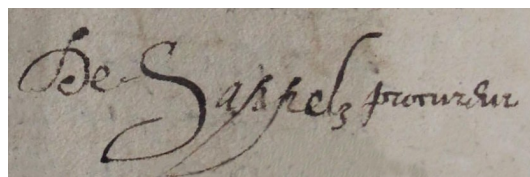 De Sappelz procureur